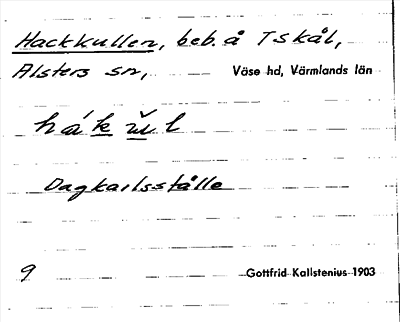 Hackkullen, beb. å Tskål,
Alsters sn, Väse hd, Värmlands län
hákŭl
Dagkarlsställe
9 Gottfrid Kallstenius 1903